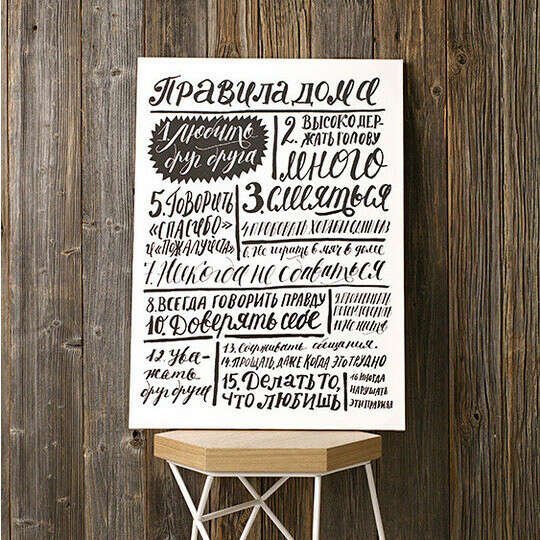 Правила дома
1. Любить
друг друга
2. Высоко дер-
жать голову
3. Много
смеяться
5. Говорить
«спасибо»
и «пожалуйста»
6. Не играть в мяч в доме
7. Никогда не сдаваться
8. Всегда говорить правду
10. Доверять себе
12. Ува-
жать
друг друга
13. Сдерживать обещания.
14. Прощать, даже когда это трудно
15. Делать то,
что любишь
16 Иногда
нарушать
эти правила